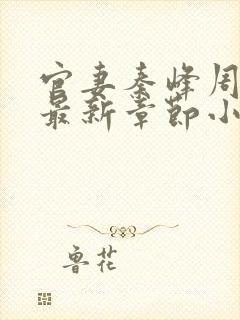 官妻秦峰周
最新章节小
鲁花